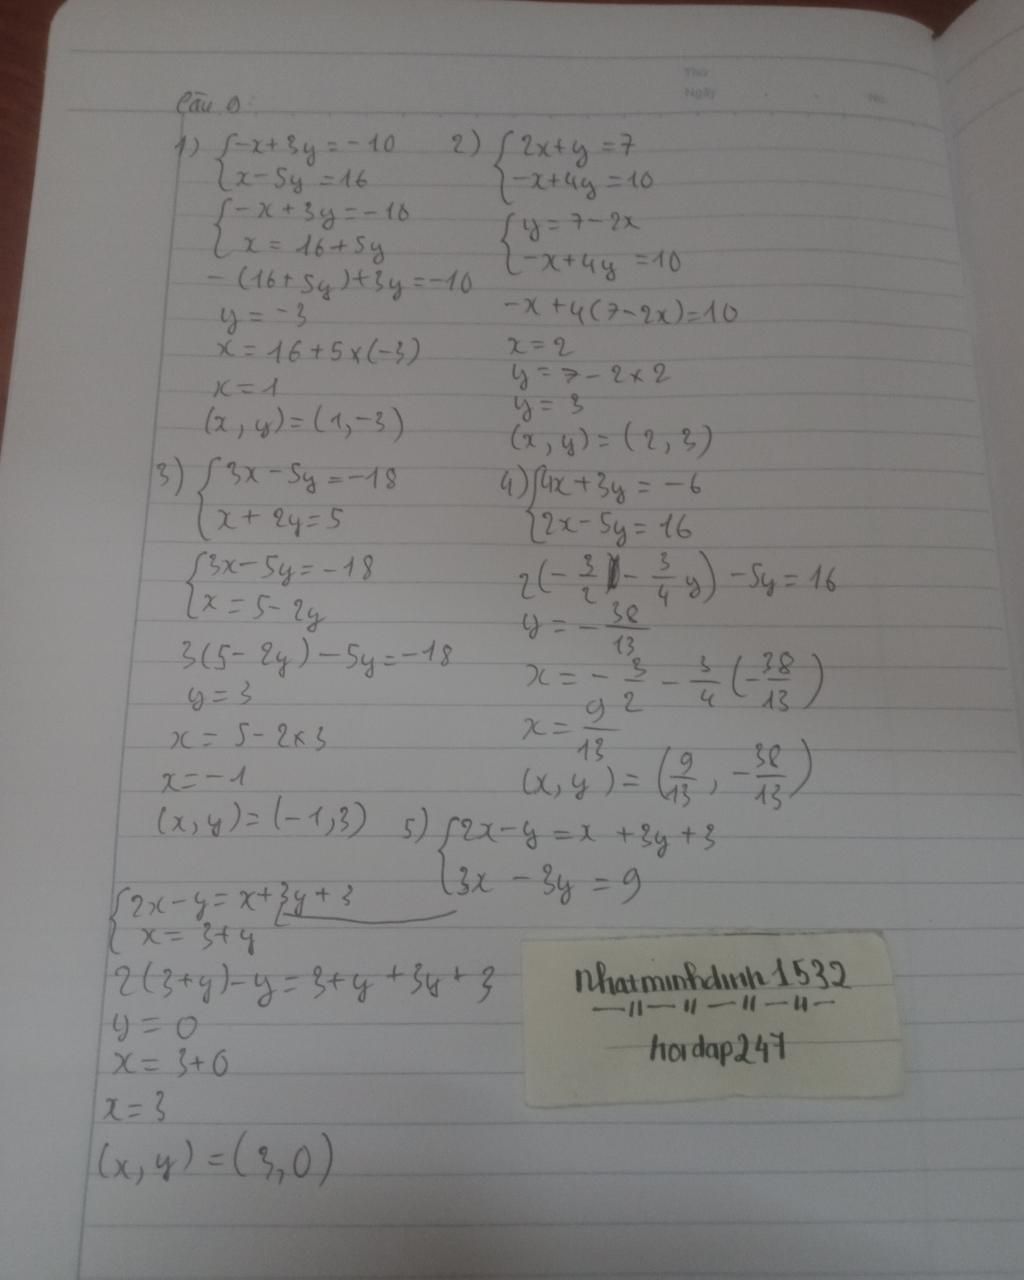 Thứ
Ngày
No.
Câu 0:
1) {-x+3y=-10
{x-5y=16
{-x+3y=-10
{x=16+5y
-(16+5y)+3y=-10
y=-3
x=16+5x(-3)
x=1
(x,y)=(1,-3)
2) {2x+y=7
{-x+4y=10
{y=7-2x
{-x+4y=10
-x+4(7-2x)=10
x=2
y=7-2x2
y=3
(x,y)=(2,3)
3) {3x-5y=-18
{x+2y=5
{3x-5y=-18
{x=5-2y
3(5-2y)-5y=-18
y=3
x=5-2x3
x=-1
(x,y)=(-1,3)
4) {4x+3y=-6
{2x-5y=16
2(-3/2-3/4y)-5y=16
y=-38/13
x=-3/2-3/4(-38/13)
x=9/13
(x,y)=(9/13,-38/13)
5) {2x-y=x+3y+3
{3x-3y=9
{2x-y=x+3y+3
{x=3+y
2(3+y)-y=3+y+3y+3
y=0
x=3+0
x=3
(x,y)=(3,0)
nhatminhdinh1532
—//—//—//—//—
hoidap247